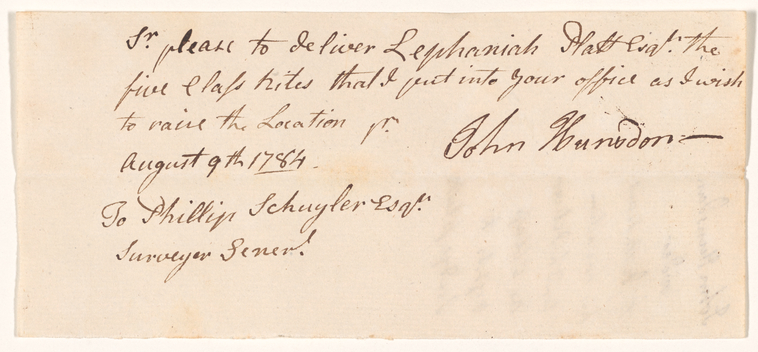 Sr. please to deliver Zephaniah Platt Esqr. the
five Class Rites that I put into your office as I wish
to raise the Location pr.
John Hunsdon
August 9th 1784.
To Phillip Schuyler Esqr.
Surveyer Generl.